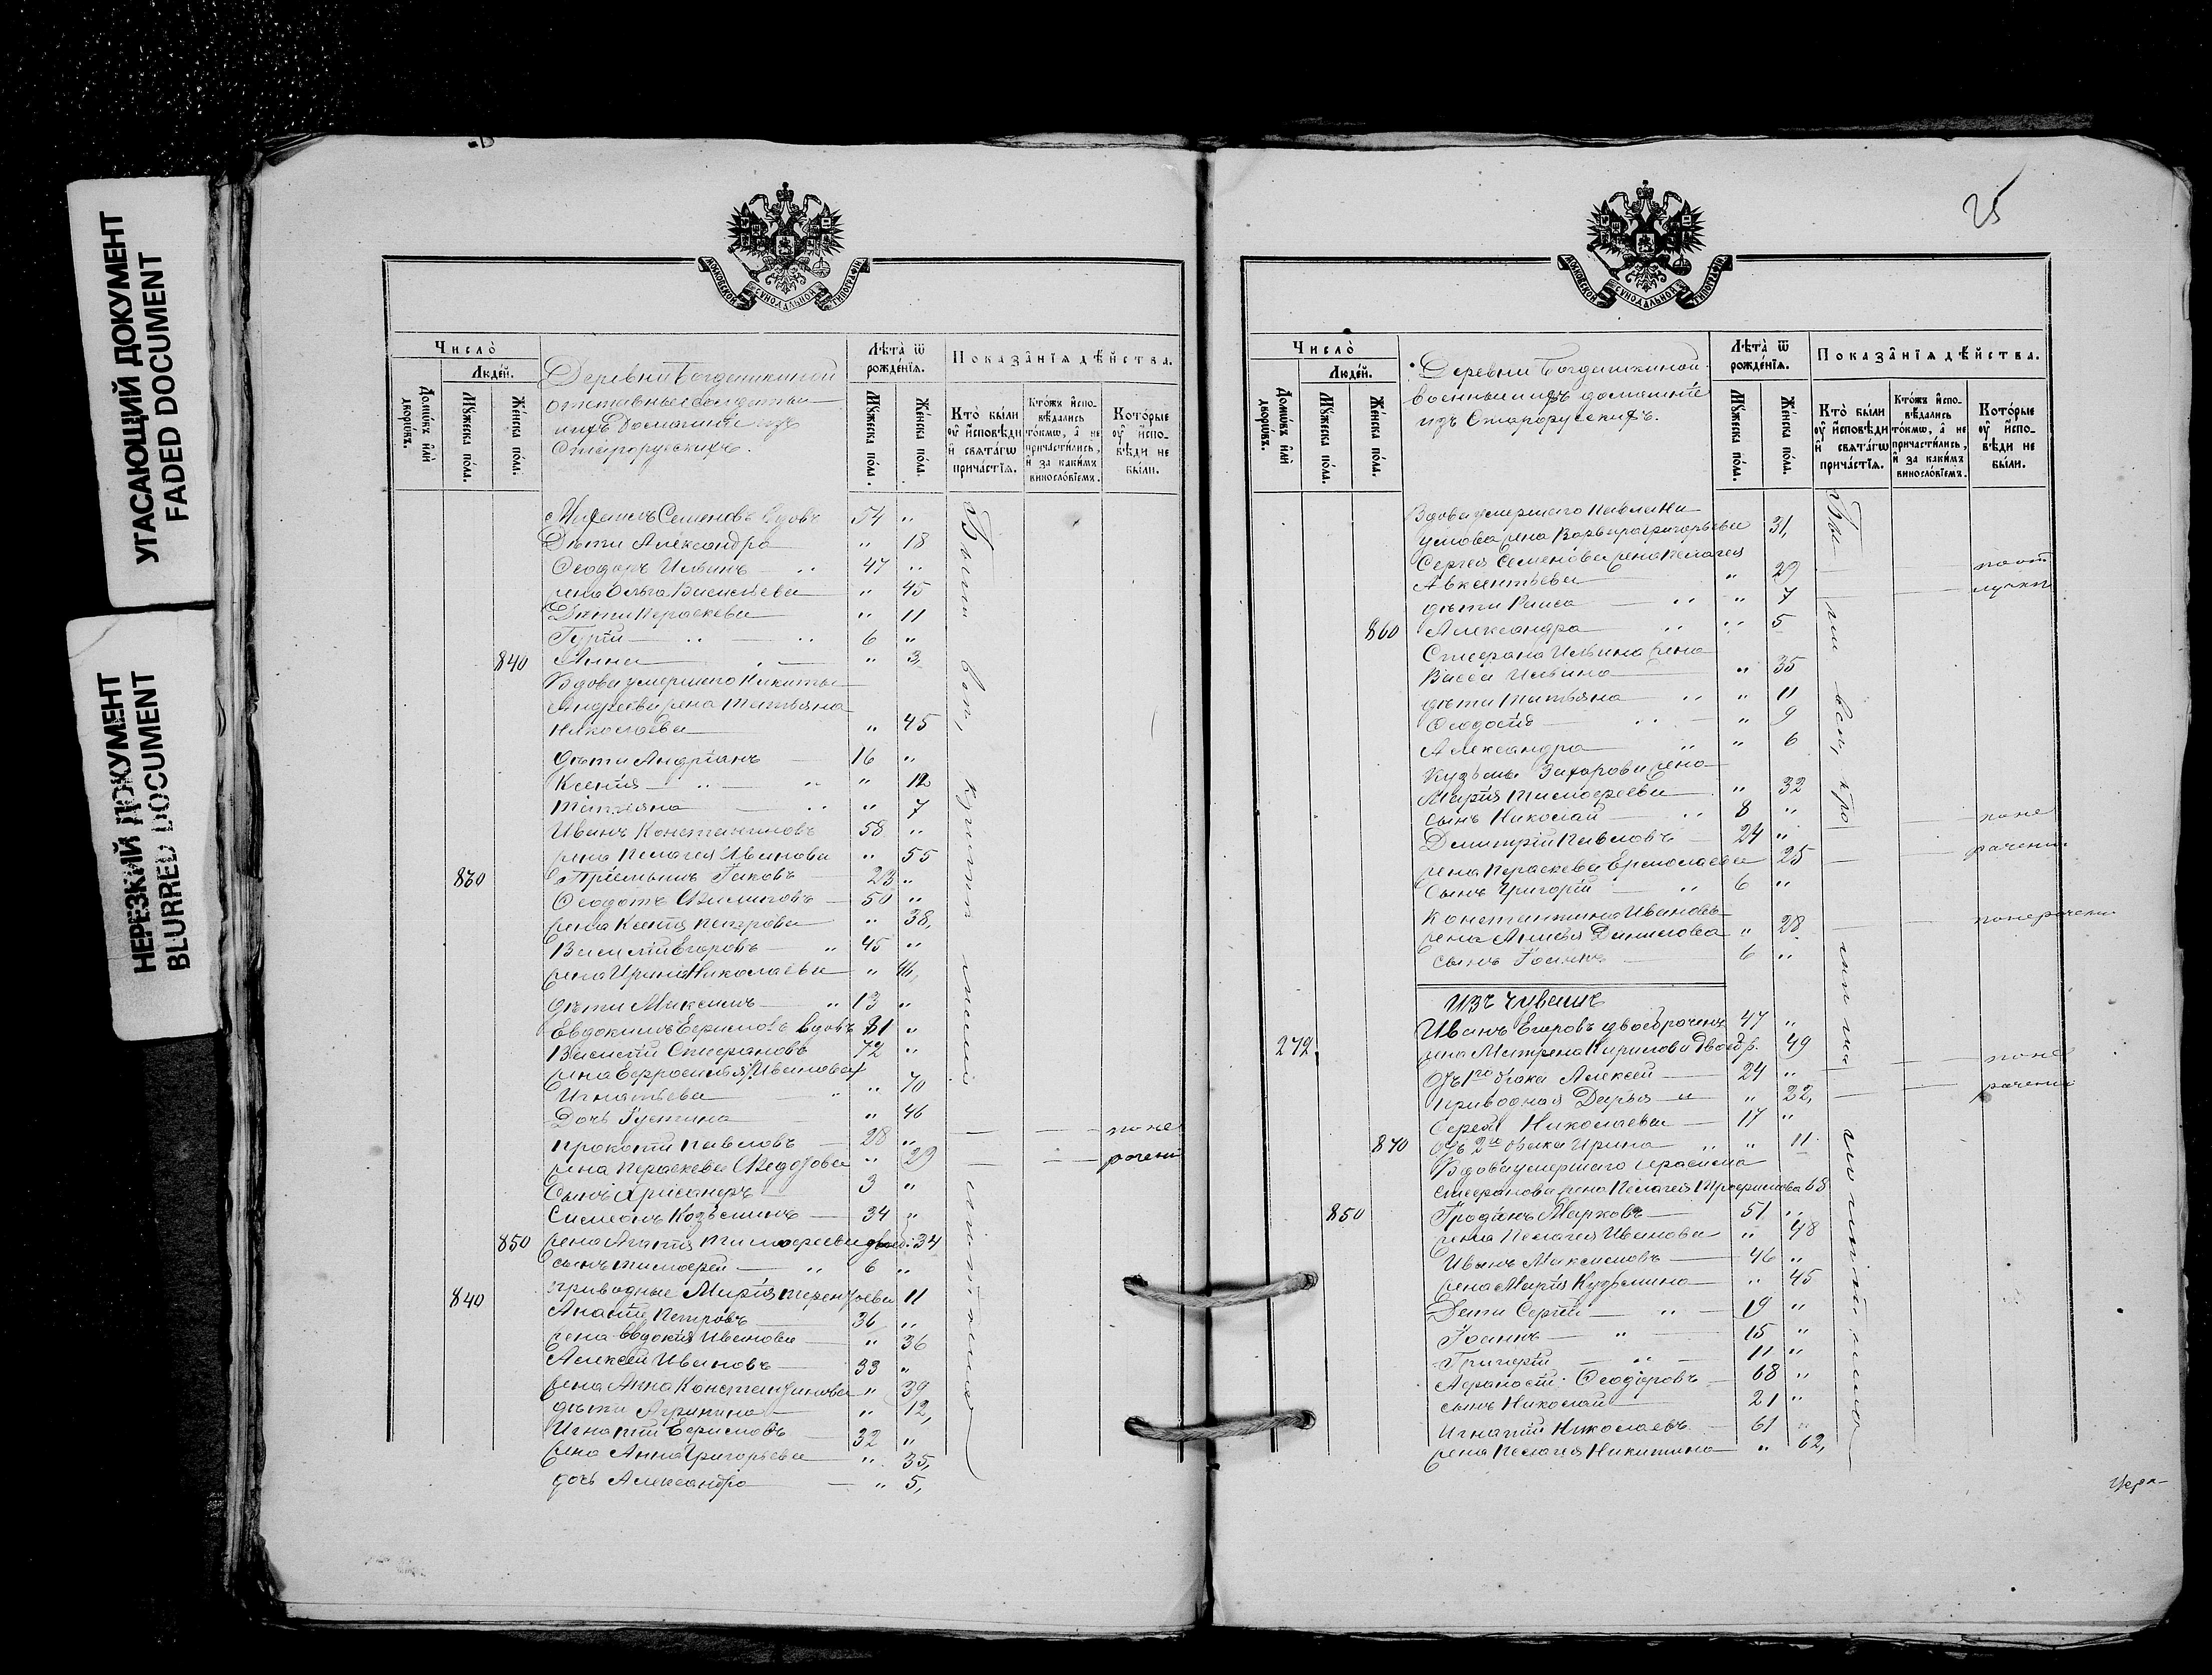 УГАСАЮЩИЙ ДОКУМЕНТ
FADED DOCUMENT
НЕРЕЗКИЙ ДОКУМЕНТ
BLURRED DOCUMENT
МОСКОВСКОЙ СѴНОДАЛЬНОЙ ТИПОГРАФІИ
Число̀
Люде́й.
Домѡ́въ и҆лѝ дворѡ́въ.
Мꙋ́жеска по́ла.
Же́нска по́ла.
Деревни Богдашкиной
отставные солдаты
ихъ Домашніе изъ
Старорусскихъ.
Лѣ́та ѿ рожде́нїѧ.
Мꙋ́жеска по́ла.
Же́нска по́ла.
Показа̑нїѧ дѣ́йства.
Кто̀ бы́ли ᲂу҆ и҆сповѣ́ди и҆ свѧта́гѡ прича́стїѧ.
Кто́жъ и҆сповѣ́дались то́кмѡ, а҆ не причасти́лись, и҆ за каки́мъ винослові́емъ.
Кото́рые ᲂу҆ и҆сповѣ́ди не бы́ли.
Семеновъ вдовъ 54 „
Дѣти Александра „ 18
Ѳеодоръ Ильинъ 47 „
жена Ольга Васильева „ 45
Дѣти Параскева „ 11
Гурій 6 „
840 Анна „ 3
Вдова умершаго Никиты
Андреева жена Татьяна
Николаева „ 45
дѣти Андріанъ 16 „
Ксенія „ 12
Татьяна „ 7
Иванъ Константиновъ 58 „
жена Пелагея Иванова „ 55
830 Пріемышъ Іаковъ 23 „
Ѳеодотъ Филиповъ 50 „
жена Ксенія Петрова „ 38
Василій Егоровъ 45 „
жена Ирина Николаева „ 46
дѣти Максимъ 13 „
Евдокимъ Ефимовъ вдовъ 81 „
Василій Стефановъ 72 „
жена Ефросинья Иванова
Игнатьева „ 70
Дочь Іустина „ 46
Прокопій Павловъ 28 „ по не
жена Параскева Ѳедорова „ 29 рачені
Сынъ Хрисанфъ 3 „
Симеонъ Козьминъ 34 „
850 жена Агапія Тимофеева двоеб: 34
сынъ Тимофей 6 „
840 приводные Марія Терентьева 11
Ананій Петровъ 36 „
жена Евдокія Иванова „ 36
Алексей Ивановъ 33 „
жена Анна Константинова „ 39
дѣти Агрипина „ 12
Игнатій Ефимовъ 32 „
жена Анна Григорьева „ 35
дочь Александра „ 5
25
Число̀
Люде́й.
Домѡ́въ и҆лѝ дворѡ́въ.
Мꙋ́жеска по́ла.
Же́нска по́ла.
Деревни Богдашкиной
военные ихъ домашніе
изъ Старорусскихъ.
Лѣ́та ѿ рожде́нїѧ.
Мꙋ́жеска по́ла.
Же́нска по́ла.
Показа̑нїѧ дѣ́йства.
Кто̀ бы́ли ᲂу҆ и҆сповѣ́ди и҆ свѧта́гѡ прича́стїѧ.
Кто́жъ и҆сповѣ́дались то́кмѡ, а҆ не причасти́лись, и҆ за каки́мъ винослові́емъ.
Кото́рые ᲂу҆ и҆сповѣ́ди не бы́ли.
Вдова умершаго Павла На
умова жена Варвара Григорьева 31
Сергея Семенова жена Пелагея
Авксентьева „ 29 по от
дѣти Раиса „ 7 лучки
860 Александра „ 5
Стефана Ильина жена
Васса Ильина „ 35
дѣти Татьяна „ 11
Ѳеодосія „ 9
Александра „ 6
Кузьмы Захарова жена
Марія Тимофеева „ 32
сынъ Николай 8 „
Димитрій Павловъ 24 „ по не
жена Параскева Ермолаева 25 рачени
Сынъ Григорій 6 „
Константина Иванова
жена Данилова „ 28 по нерачени
сынъ Іоаннъ 6 „
изъ чувашъ
Иванъ Егоровъ двоебраченъ 47 „
272 жена Матрена Кирилова двоебр. 49
Отъ 1го брака Алексей 24 „ по не
приводная Дарья „ 22 рачени
Сергей Николаева 17 „
870 Отъ 2го брака Ирина „ 11
Вдова умершаго Герасима
Стефанова жена Пелагея Трофимова 68
850 Іродіонъ Марковъ 51 „
жена Пелагея Иванова „ 48
Иванъ Максимовъ 46 „
жена Марія Кузьмина „ 45
Дети Сергій 19 „
Іоаннъ 15 „
Григорій 11 „
Афанасій Ѳеодоровъ 68 „
сынъ Николай 21 „
Игнатій Николаевъ 61 „
жена Пелагея Никитина „ 62